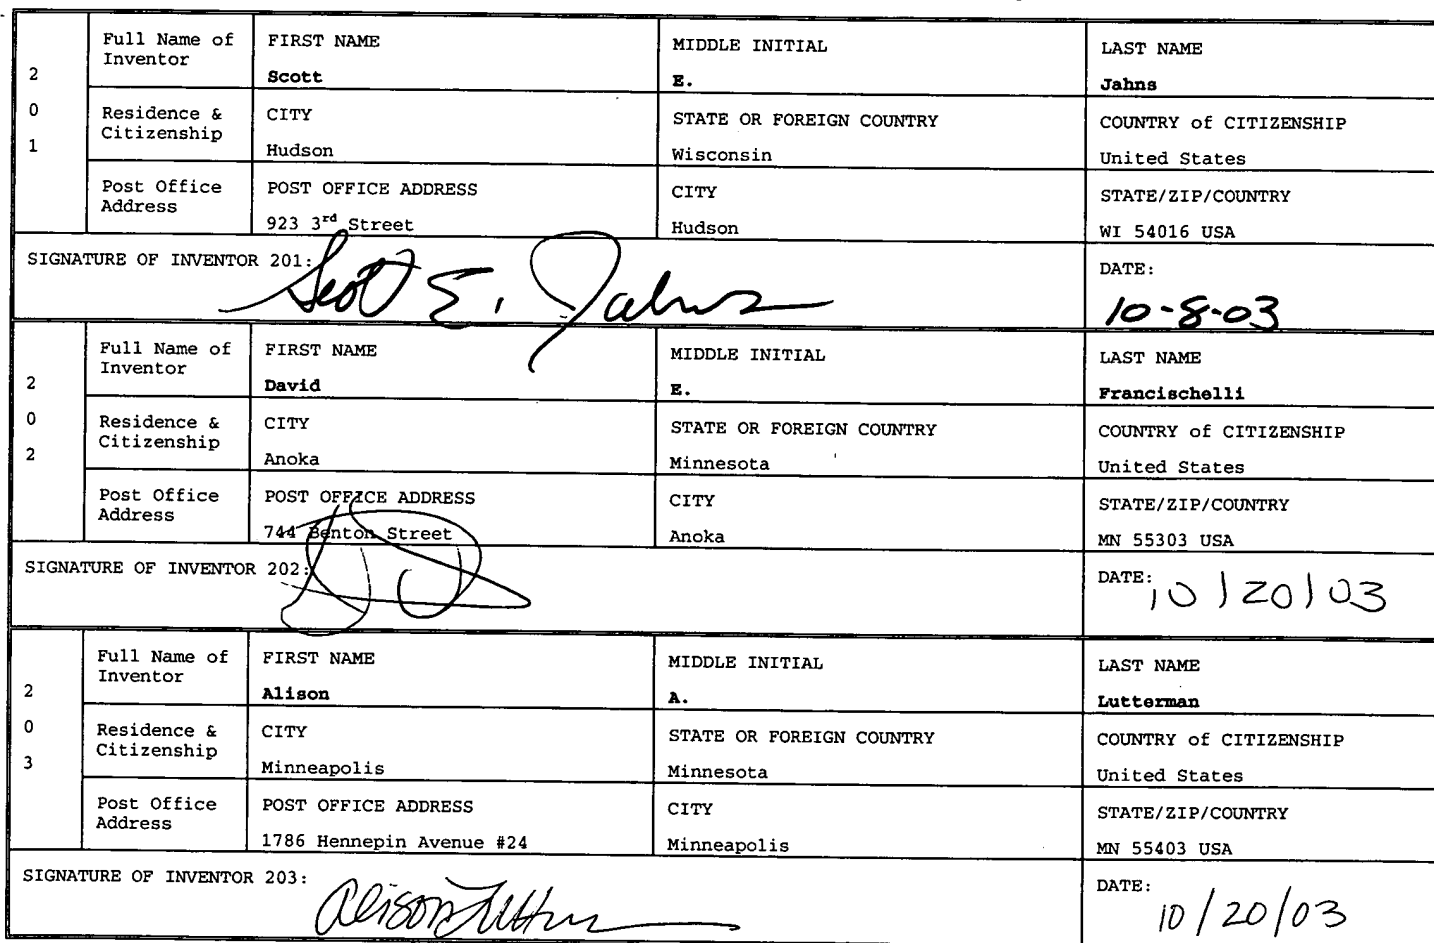 2
0
1
Full Name of Inventor
FIRST NAME
Scott
MIDDLE INITIAL
E.
LAST NAME
Jahns
Residence & Citizenship
CITY
Hudson
STATE OR FOREIGN COUNTRY
Wisconsin
COUNTRY of CITIZENSHIP
United States
Post Office Address
POST OFFICE ADDRESS
923 3rd Street
CITY
Hudson
STATE/ZIP/COUNTRY
WI 54016 USA
SIGNATURE OF INVENTOR 201: Scott E. Jahns
DATE:
10-8-03
2
0
2
Full Name of Inventor
FIRST NAME
David
MIDDLE INITIAL
E.
LAST NAME
Francischelli
Residence & Citizenship
CITY
Anoka
STATE OR FOREIGN COUNTRY
Minnesota
COUNTRY of CITIZENSHIP
United States
Post Office Address
POST OFFICE ADDRESS
744 Benton Street
CITY
Anoka
STATE/ZIP/COUNTRY
MN 55303 USA
SIGNATURE OF INVENTOR 202:
DATE: 10/20/03
2
0
3
Full Name of Inventor
FIRST NAME
Alison
MIDDLE INITIAL
A.
LAST NAME
Lutterman
Residence & Citizenship
CITY
Minneapolis
STATE OR FOREIGN COUNTRY
Minnesota
COUNTRY of CITIZENSHIP
United States
Post Office Address
POST OFFICE ADDRESS
1786 Hennepin Avenue #24
CITY
Minneapolis
STATE/ZIP/COUNTRY
MN 55403 USA
SIGNATURE OF INVENTOR 203: Alison
DATE:
10/20/03